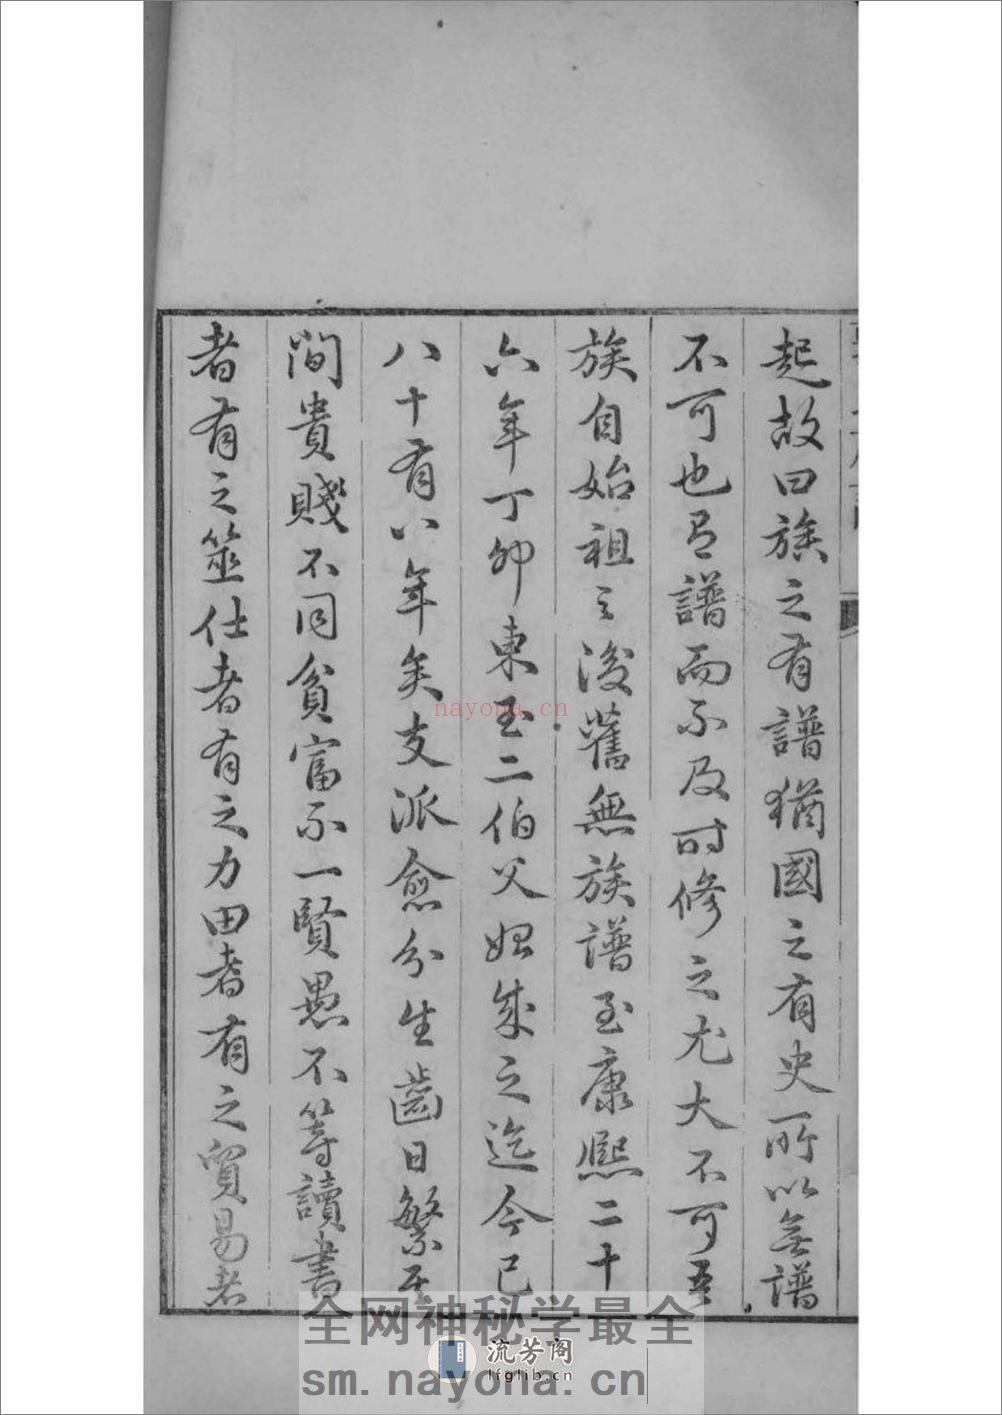 起故曰族之有譜猶國之有史所以無譜
不可也有譜而不及时修之尤大不可吾
族自始祖之後舊無族譜至康熙二十
六年丁卯東至二伯父始成之迄今已
八十有八年矣支派愈分生齒日繁其
间貴賤不同貧富不一賢愚不等讀書
者有之筮仕者有之力田者有之貿易者
nayona.cn
全网神秘学最全
流芳阁
lfglib.cn
sm.nayona.cn